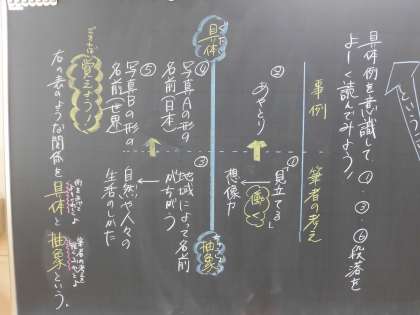 具体例を意識して①・③・⑥段落を
よーく読んでみよう！
事例
筆者の考え
②
あやとり
①
見立てる
働
想像力
具体
抽象
④
写真Aの形の
名前(日本)
③
地域によって名前
がちがう
⑤
写真Bの形の
名前(世界)
自然や人々の
生活のしかた
覚えよう！
右の表のような関係を具体と抽象という。